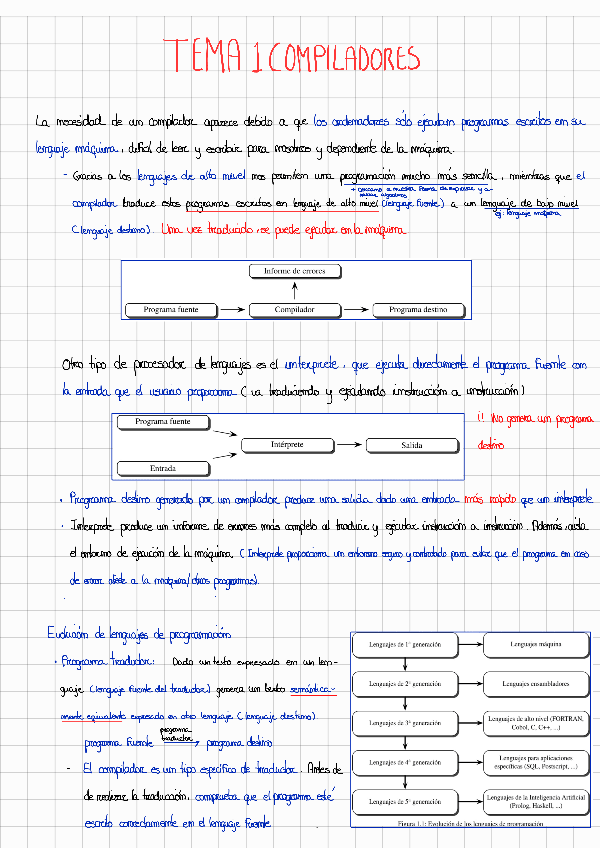 TEMA 1 COMPILADORES
La necesidad de un compilador aparece debido a que los ordenadores sólo ejecutan programas escritos en su
lenguaje máquina, difícil de leer y escribir para nosotros y dependiente de la máquina.
- Gracias a los lenguajes de alto nivel nos permiten una programación mucho más sencilla, mientras que el
+ cercano a nuestra forma de expresar y a
compilador traduce estos programas escritos en lenguaje de alto nivel (lenguaje fuente) a un lenguaje de bajo nivel
ej: lenguaje máquina
(lenguaje destino). Una vez traducido, se puede ejecutar en la máquina.
Informe de errores
Programa fuente Compilador Programa destino
Otro tipo de procesador de lenguajes es el intérprete, que ejecuta directamente el programa fuente con
la entrada que el usuario proporciona (va traduciendo y ejecutando instrucción a instrucción)
Programa fuente
Intérprete Salida
Entrada
¡! No genera un programa
destino
· Programa destino generado por un compilador produce una salida dado una entrada más rápido que un intérprete
· Intérprete produce un informe de errores más completo al traducir y ejecutar instrucción a instrucción. Además, aísla
el entorno de ejecución de la máquina. (Intérprete proporciona un entorno seguro y controlado para evitar que el programa en caso
de error afecte a la máquina/otros programas).
Evolución de lenguajes de programación
· Programa Traductor: Dado un texto expresado en un len-
guaje (lenguaje fuente del traductor) genera un texto semántica-
mente equivalente expresado en otro lenguaje (lenguaje destino).
programa
traductor
programa fuente → programa destino
- El compilador es un tipo específico de traductor. Antes de
de realizar la traducción, comprueba que el programa esté
escrito correctamente en el lenguaje fuente
Lenguajes de 1ª generación Lenguajes máquina
Lenguajes de 2ª generación Lenguajes ensambladores
Lenguajes de 3ª generación Lenguajes de alto nivel (FORTRAN,
Cobol, C, C++, ...)
Lenguajes de 4ª generación Lenguajes para aplicaciones
específicas (SQL, Postscript, ...)
Lenguajes de 5ª generación Lenguajes de la Inteligencia Artificial
(Prolog, Haskell, ...)
Figura 1.1: Evolución de los lenguajes de programación